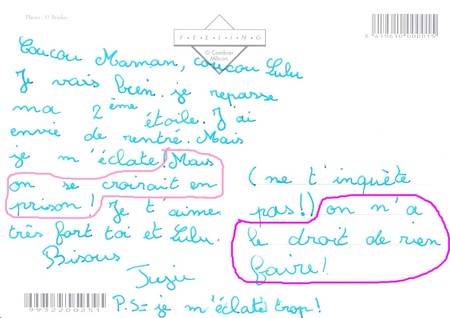 Photo : O. Brodin
F•E•E•L•I•N•G
© Combier
Mâcon
Coucou Maman, coucou Lulu
Je vais bien. je repasse
ma 2ème étoile. J'ai
envie de rentré. Mais
je m'éclate! Mais
on se croirait en
prison! Je t'aime
très fort toi et Lulu.
Bisous
Juju
P.S= je m'éclate trop!
( ne t'inquète
pas!) on n'a
le droit de rien
faire!
9932200251